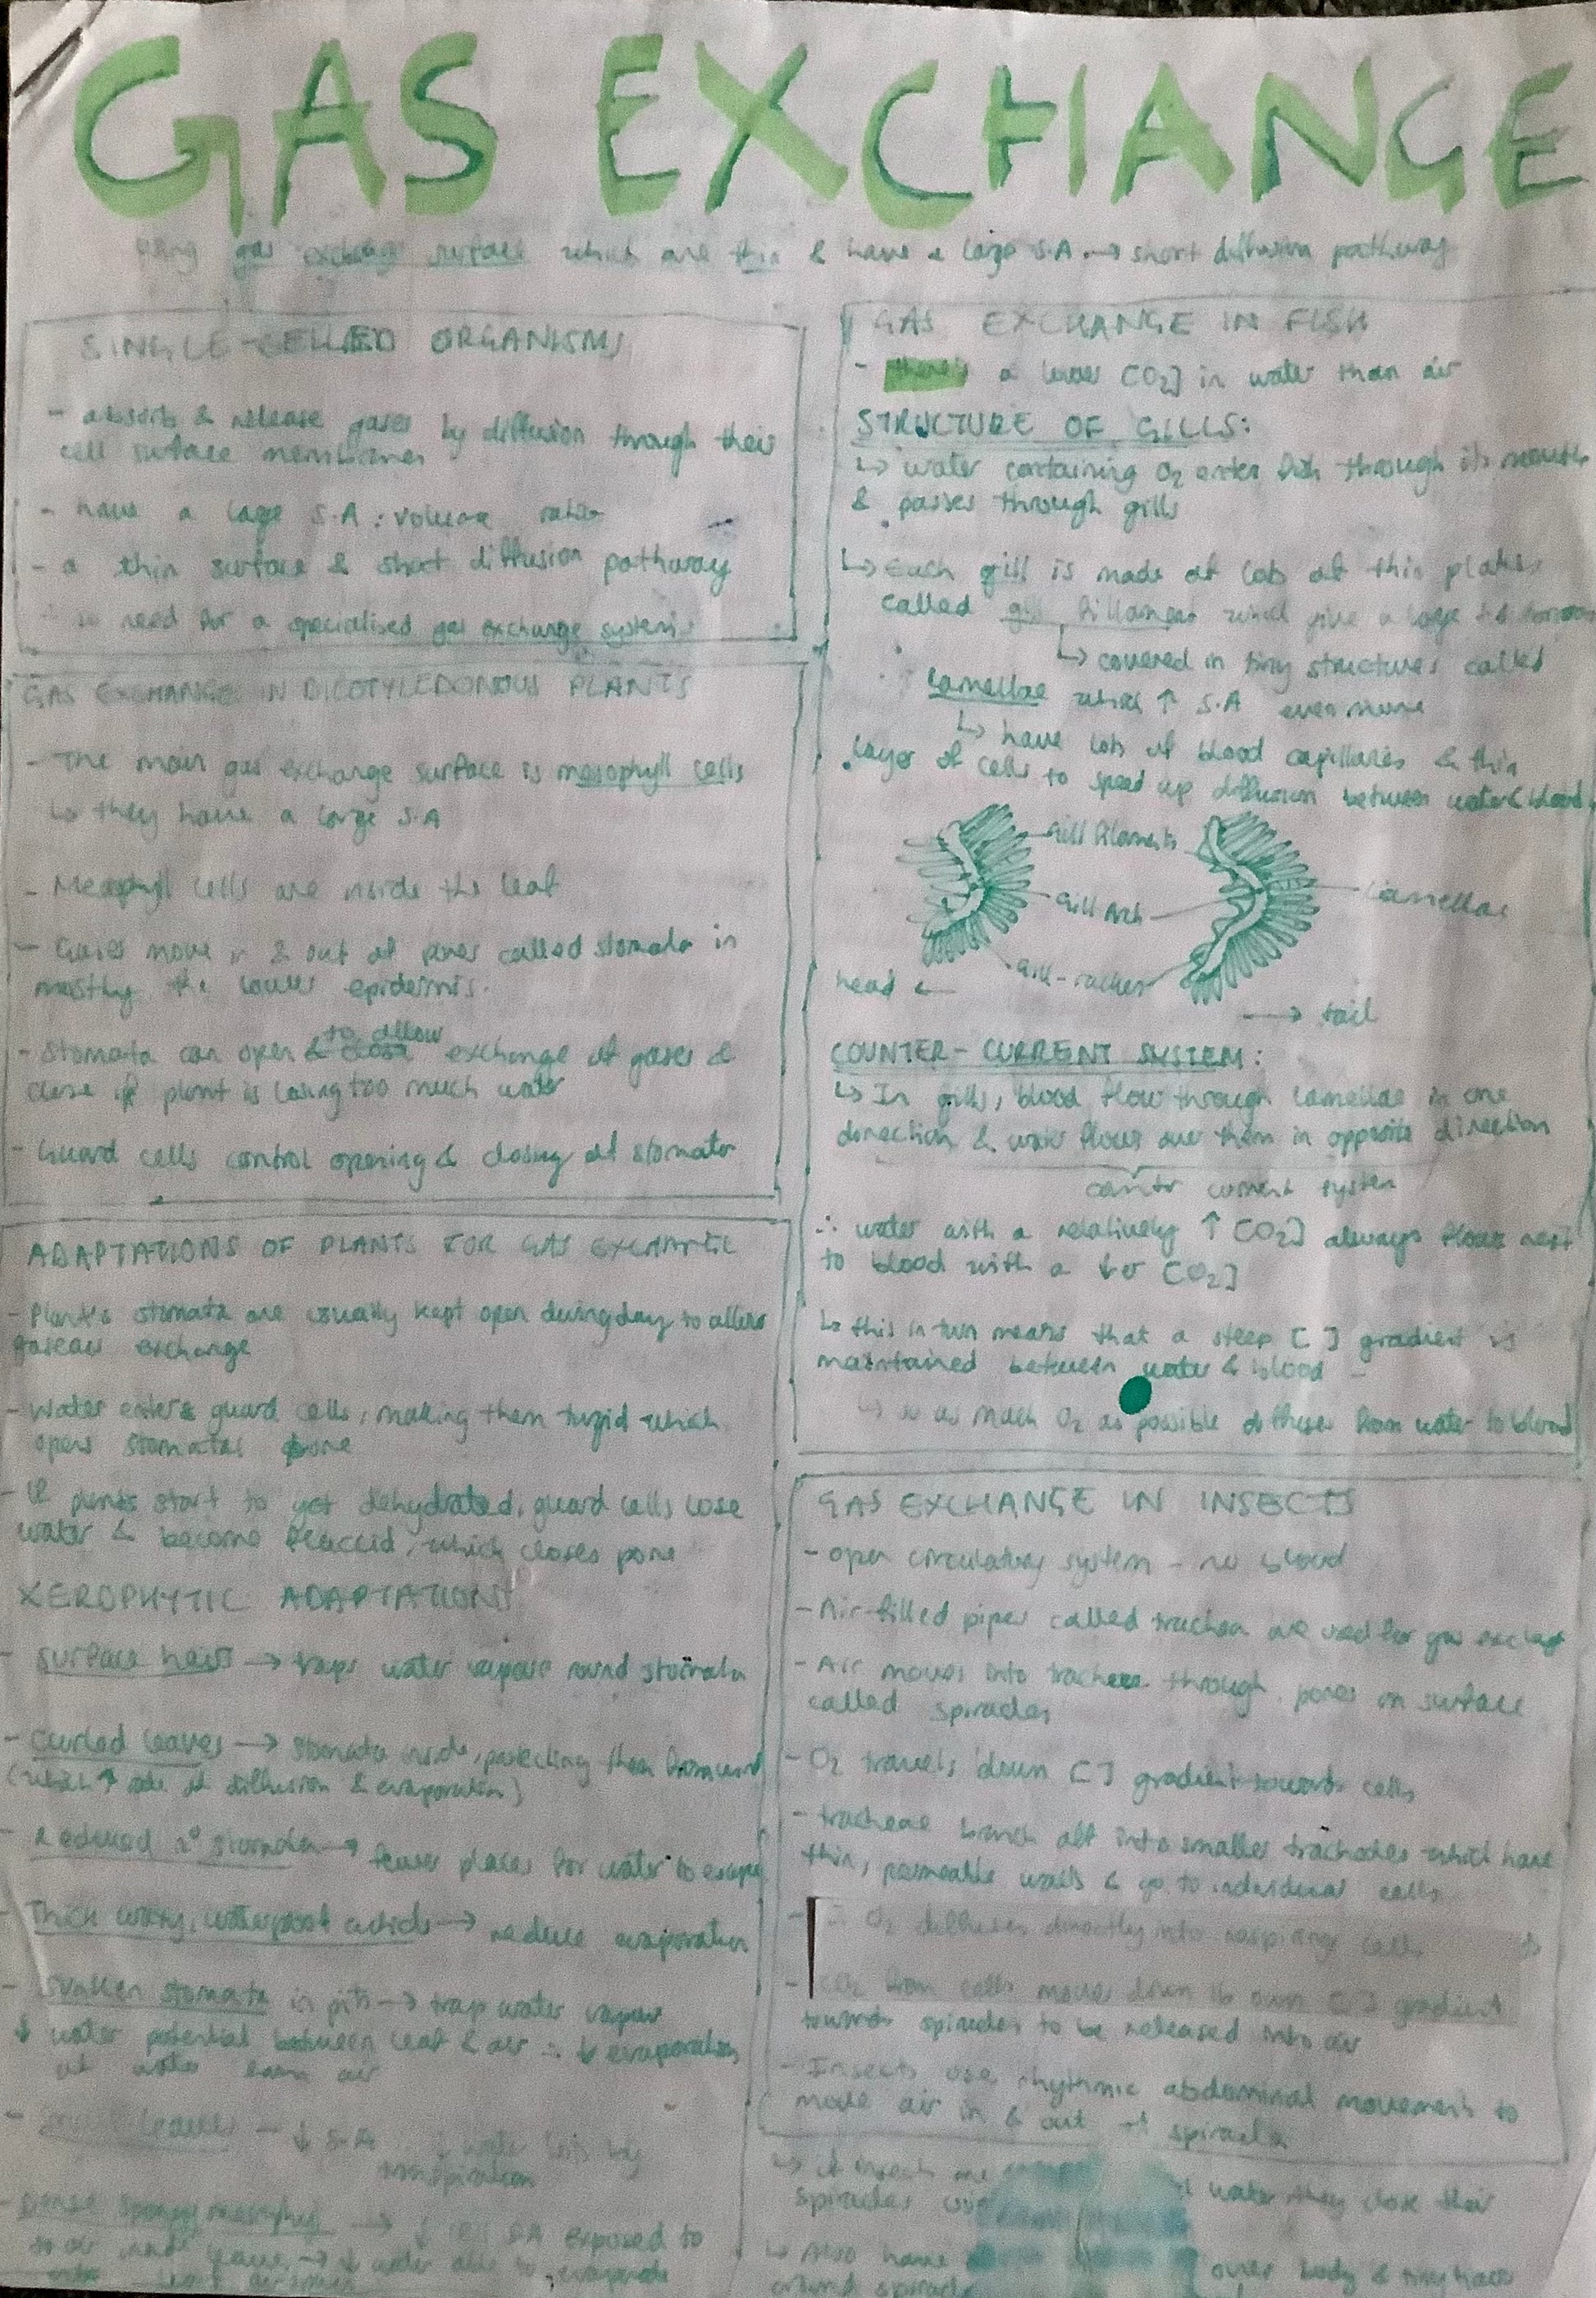 GAS EXCHANGE
gas exchange surface which are thin & have a large S.A → short diffusion pathway
SINGLE-CELLED ORGANISMS
- absorb & release gases by diffusion through their
cell surface membranes
- have a large S.A : volume ratio
- a thin surface & short diffusion pathway
no need for a specialised gas exchange system
GAS EXCHANGE IN DICOTYLEDONOUS PLANTS
- The main gas exchange surface is mesophyll cells
↳ they have a large S.A
- Mesophyll cells are inside the leaf
- Gases move in & out of pores called stomata in
mostly the lower epidermis.
to allow
- Stomata can open & close exchange of gases &
close if plant is losing too much water
- Guard cells control opening & closing of stomata
ADAPTATIONS OF PLANTS FOR GAS EXCHANGE
- Plant's stomata are usually kept open during day to allow
gaseous exchange
- Water enters guard cells, making them turgid which
opens stomatal pore
- If plants start to get dehydrated, guard cells lose
water & become flaccid, which closes pore
XEROPHYTIC ADAPTATIONS
- surface hairs → traps water vapour round stomata
- curled leaves → stomata inside, protecting them from wind
(which ↑ rate of diffusion & evaporation)
- Reduced n° stomata → fewer places for water to escape
- Thick waxy, waterproof cuticle → reduce evaporation
- Sunken stomata in pits → trap water vapour
↓ water potential between leaf & air ∴ ↓ evaporation
of water air
- leaves - ↓ S.A water loss by
transpiration
- spongy mesophyll → ↓ SA exposed to
air → ↓ water able to evaporate
GAS EXCHANGE IN FISH
- there's a lower [O2] in water than air
STRUCTURE OF GILLS:
↳ water containing O2 enter fish through its mouth
& passes through gills
↳ Each gill is made of lots of thin plates
called gill filaments which give a large
↳ covered in tiny structures called
lamellae which ↑ S.A even more
↳ have lots of blood capillaries & thin
layer of cells to speed up diffusion between water & blood
Gill filaments
Gill Arch
Lamellae
Gill-raker
head ←
→ tail
COUNTER-CURRENT SYSTEM:
↳ In gills, blood flow through lamellae in one
direction & water flows over them in opposite direction
current system
∴ water with a relatively ↑ [O2] always flows next
to blood with a ↓er [O2]
↳ this in turn means that a steep [ ] gradient is
maintained between water & blood
↳ so as much O2 as possible diffuses from water to blood
GAS EXCHANGE IN INSECTS
- open circulatory system - no blood
- Air-filled pipes called trachea are used for gas exchange
- Air moves into tracheae through pores on surface
called spiracles
- O2 travels down [ ] gradient towards cells
- tracheae branch off into smaller tracheoles which have
thin, permeable walls & go to individual cells
- ∴ O2 diffuses directly into respiring cells
- CO2 from cells moves down its own [ ] gradient
towards spiracles to be released into air
- Insects use rhythmic abdominal movement to
move air in & out of spiracles
↳ if insects are water they close their
spiracles
↳ Also have over body & tiny hairs
around spiracles